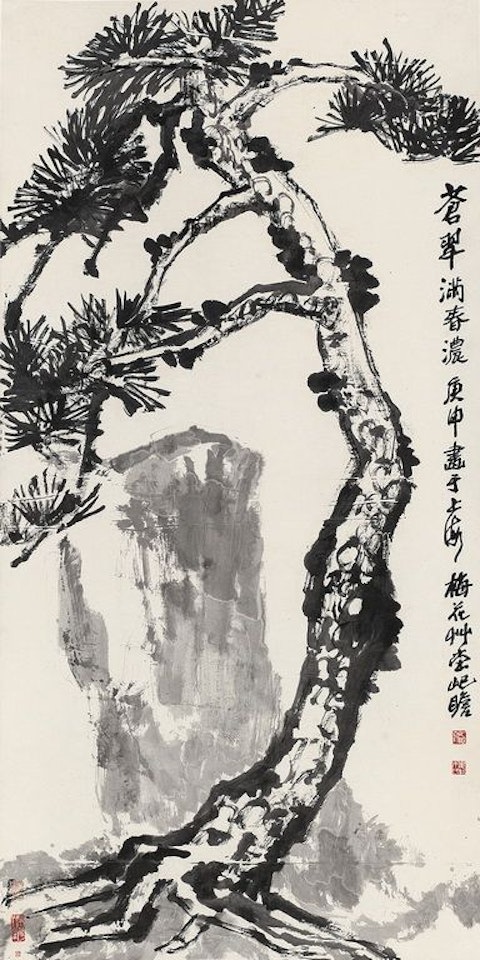 蒼翠滿春濃庚申畫于上海梅花艸堂屺瞻